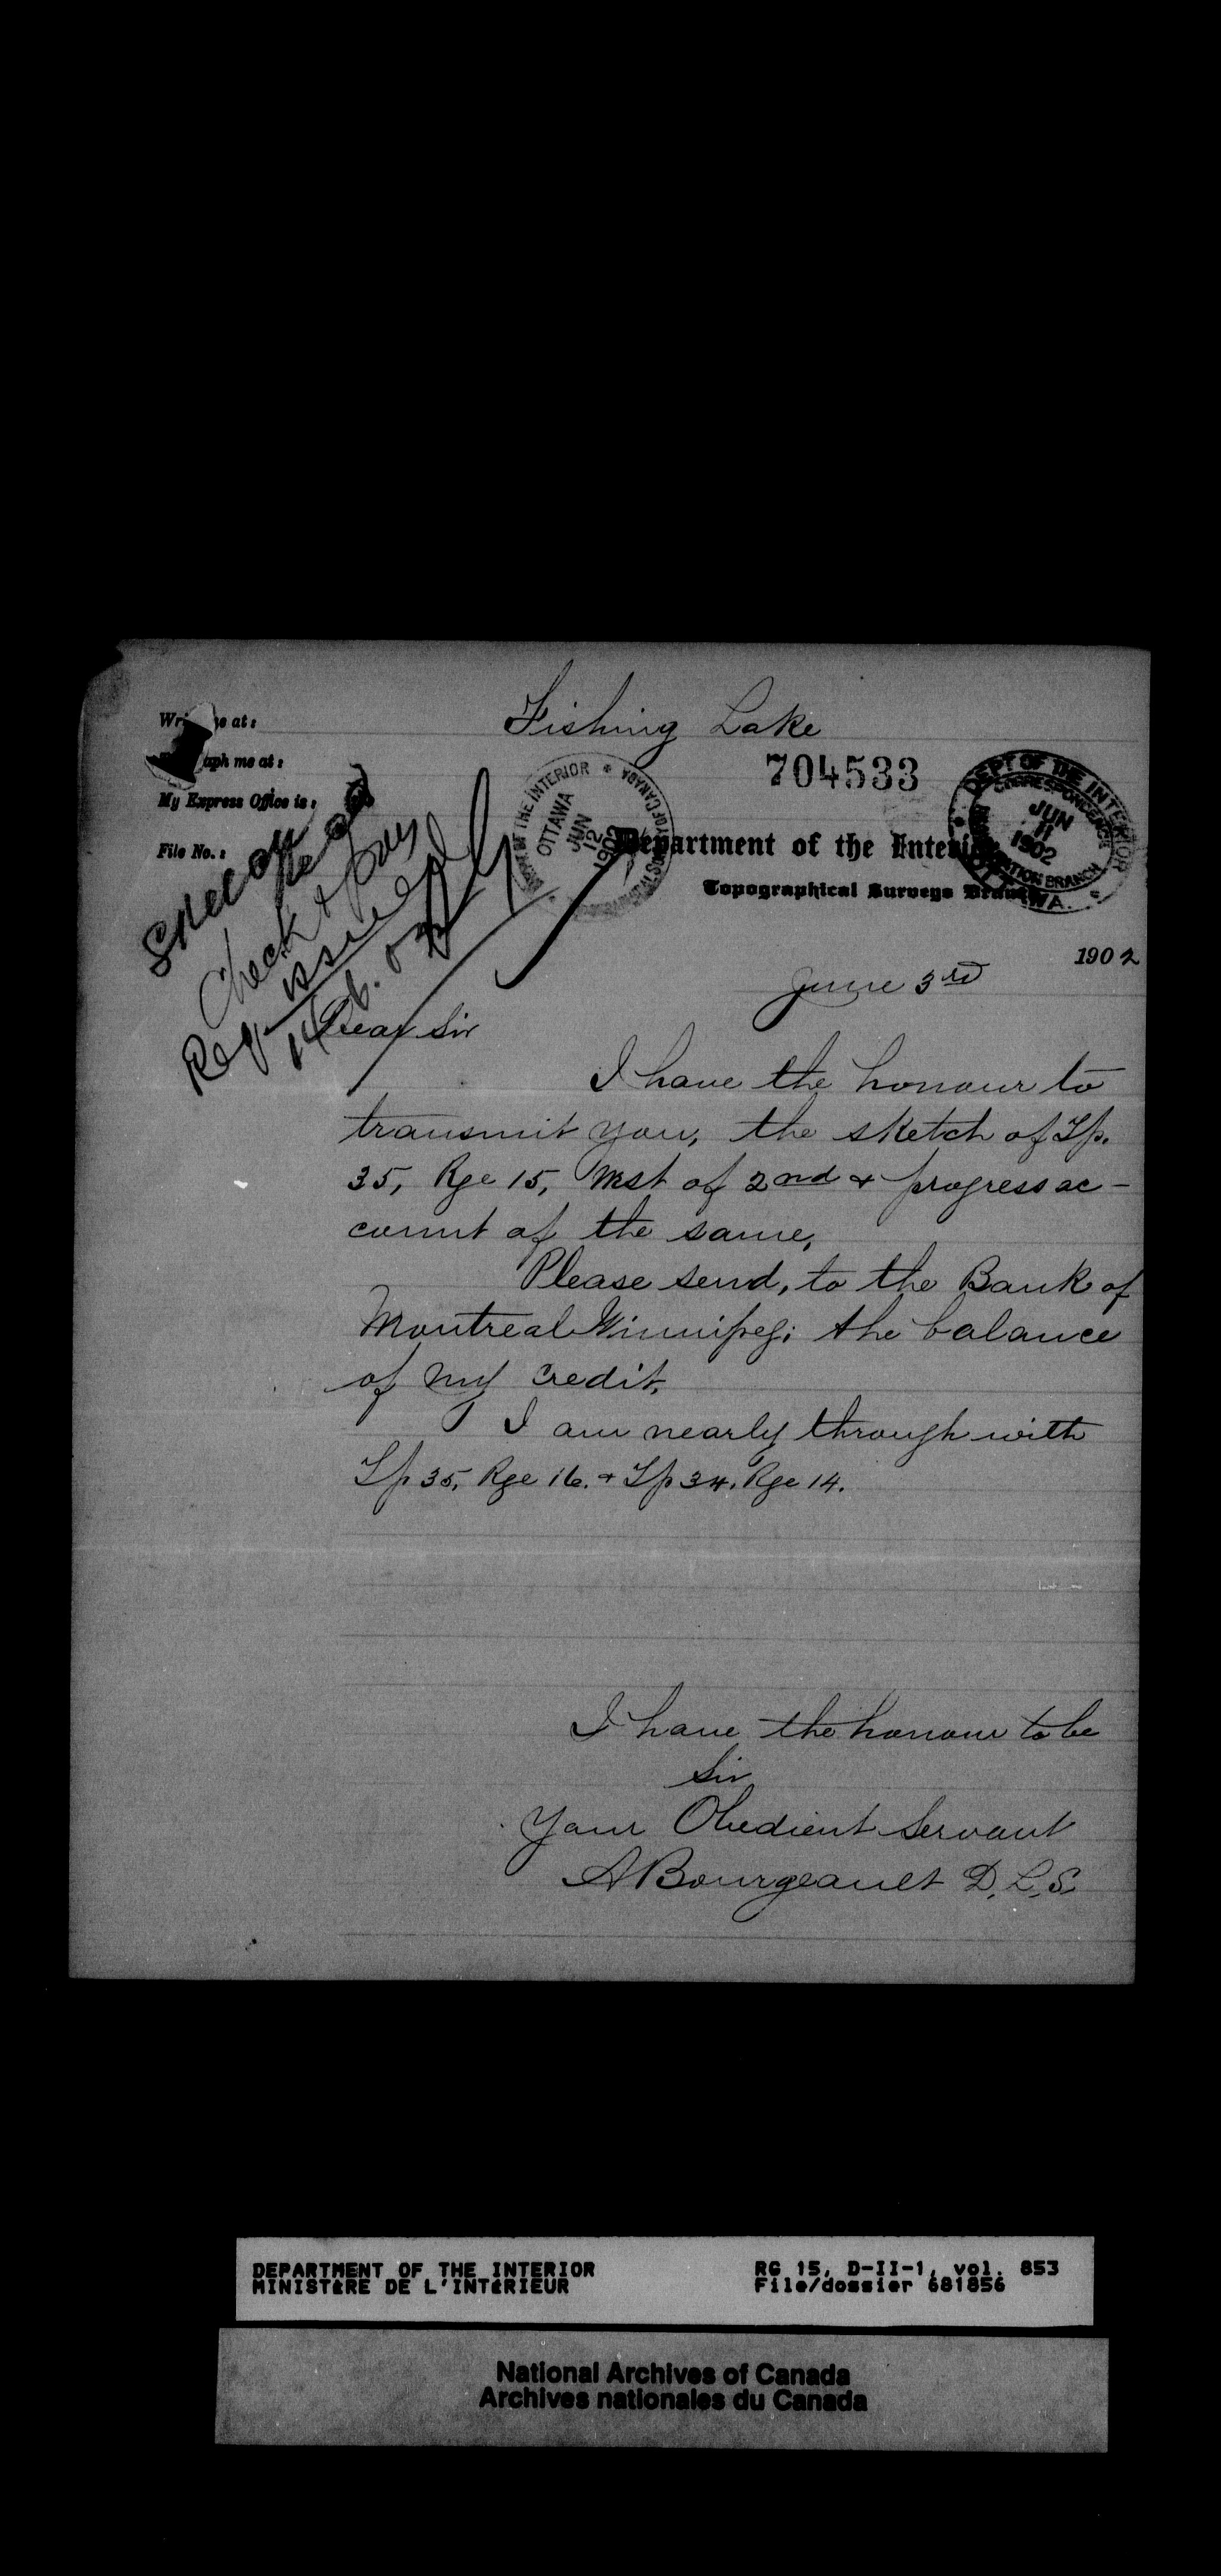 Fishing Lake
Wri me at:
aph me at:
My Express Office is:
File No.:
704533
DEPT OF THE INTERIOR
CORRESPONDENCE
JUN
11
1902
REGISTRATION BRANCH
OTTAWA.
OF THE INTERIOR
OTTAWA
JUN
12
1902
CANADA
Department of the Interior
Topographical Surveys Branch
Check & pay
Req. issued
1902
June 3rd
Dear Sir
I have the honour to
transmit you, the sketch of Tp.
35, Rge 15, West of 2nd & progress ac-
count of the same,
Please send, to the Bank of
Montreal Winnipeg; the balance
of my credit,
I am nearly through with
Tp 35, Rge 16. & Tp 34, Rge 14.
I have the honour to be
Sir
Your Obedient Servant
A Bourgeault D.L.S.
DEPARTMENT OF THE INTERIOR
MINISTÈRE DE L'INTÉRIEUR
RG 15, D-II-1, vol. 853
File/dossier 681856
National Archives of Canada
Archives nationales du Canada